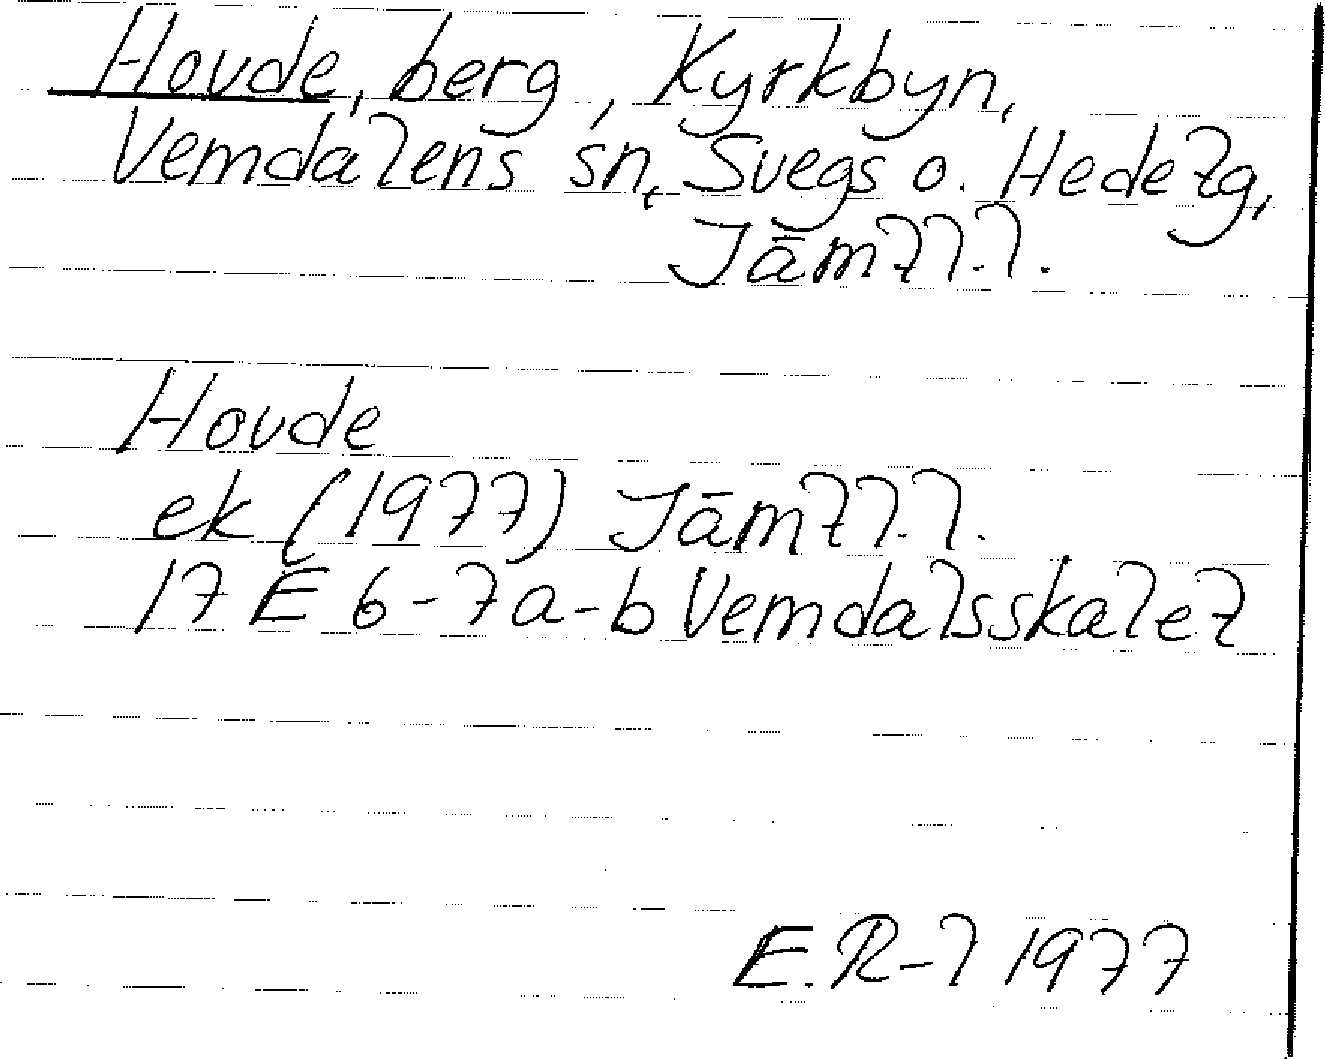 Hovde, berg, Kyrkbyn,
Vemdalens sn, Svegs o. Hede tg,
Jämtl.l.
Hovde
ek (1977) Jämtl.l.
17 E 6-7a-b Vemdalsskalet
E.R-l 1977